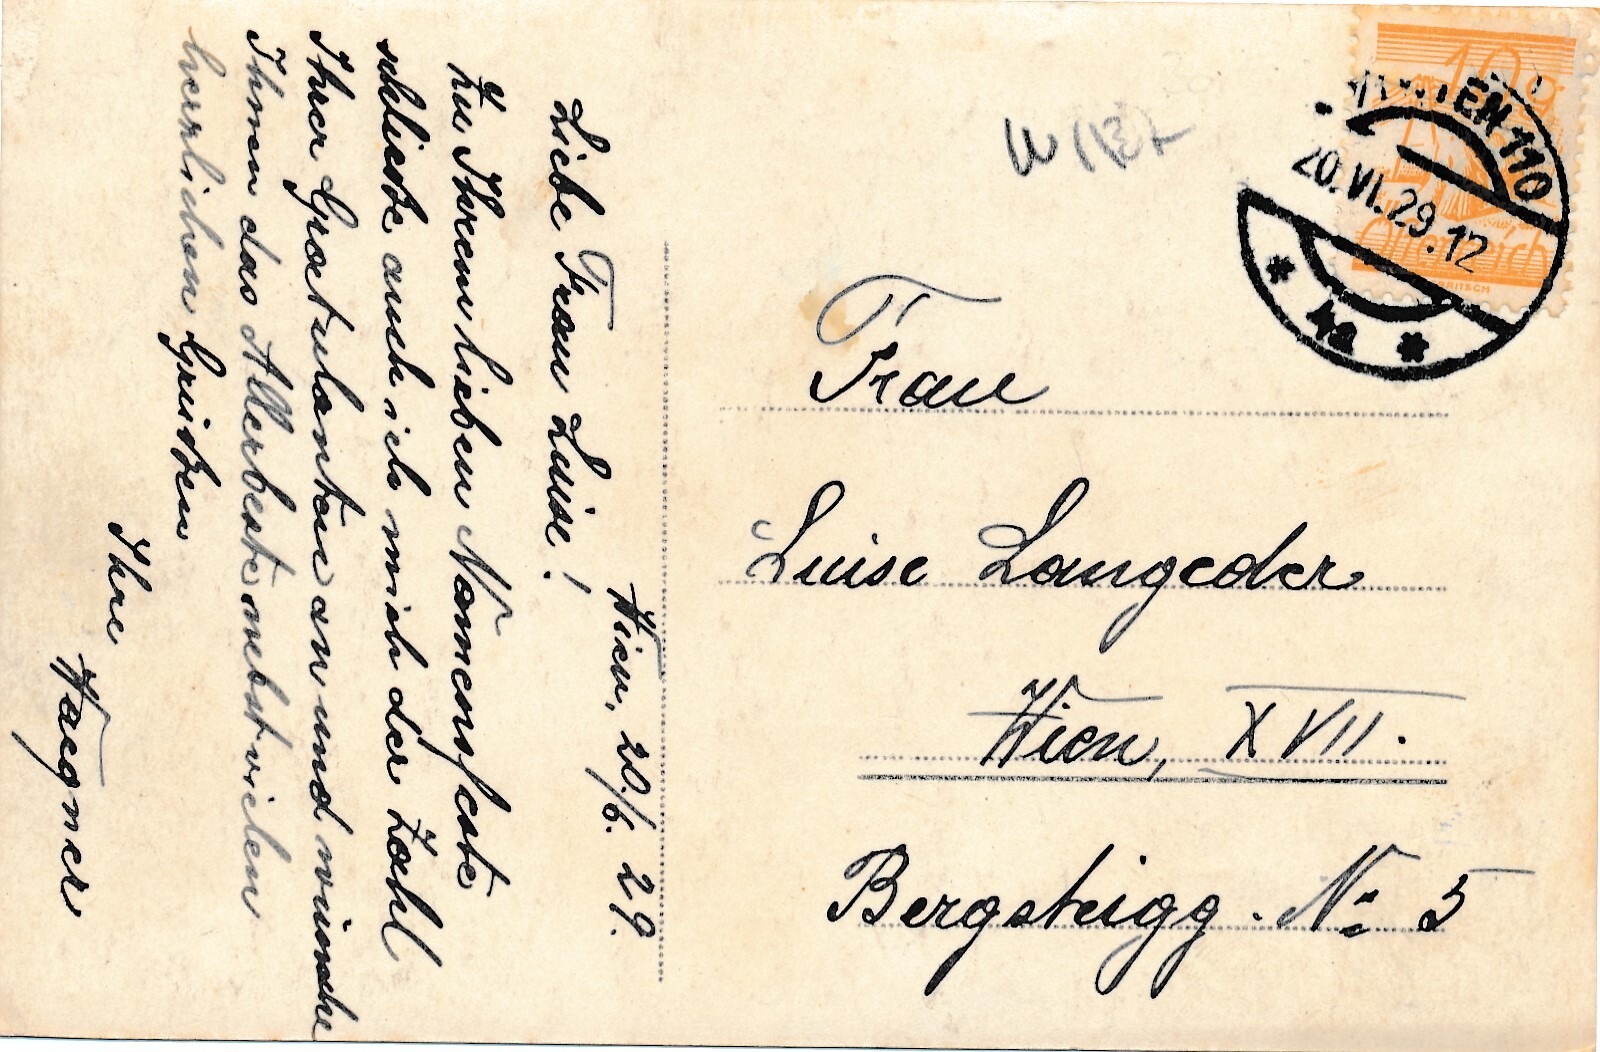 Wien, 20./6. 29.
Liebe Frau Luise!
Zu Ihrem lieben Namensfeste
schließe auch ich mich der Zahl
Ihrer Gratulanten an und wünsche
Ihnen das Allerbeste nebst vielen
herzlichen Grüßen
Ihre
Waegner
10g
WIEN 110
20.VI.29.12
* 4a *
Österreich
Frau
Luise Langeder
Wien, XVII.
Bergsteigg. No 5